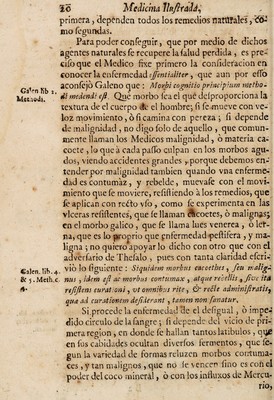 20 Medicina Ilustrada,
primera, dependen todos los remedios naturales, co-
mo segundas.
Para poder conseguir, que por medio de dichos
agentes naturales se recupere la salud perdida, es preci-
so que el Medico fixe primero la consideracion en
conocer la enfermedad essentialiter, que aun por esso
aconsejò Galeno que : Morbi cognitio principium metho-
di medendi est. Què morbo sea el què desproporciona la
textura de el cuerpo de el hombre; si se mueve con ve-
loz movimiento, ò si camina con pereza ; si depende
de malignidad, no digo solo de aquello, que comun-
mente llaman los Medicos malignidad, ò materia ca-
coete, lo que à cada passo culpan en los morbos agu-
dos, viendo accidentes grandes, porque debemos en-
tender por malignidad tambien quando vna enferme-
dad es contumàz, y rebelde, muevase con el movi-
miento que se moviere, resistiendo à los remedios, que
se aplican con recto vso, como se experimenta en las
vlceras resistentes, que se llaman cacoetes, ò malignas;
en el morbo galico, que se llama lues venerea, ò ler-
na, que es lo proprio que enfermedad pestifera, y ma-
ligna; no quiero apoyar lo dicho con otro que con el
adversario de Thesalo, pues con tanta claridad escri-
viò lo siguiente : Siquidem morbus cacoethes, seu malig-
nus, idem est ac morbus contumax, atque rebellis, sive ita
resistens curationi, vt omnibus ritè, & rectè administratis,
quæ ad curationem desiderant, tamen non sanatur.
Si procede la enfermedad de el desigual, ò impe-
dido circulo de la sangre; si depende del vicio de pri-
mera region, en donde se hallan tantos latibulos, que
en sus cabidades ocultan diversos fermentos, que se-
gun la variedad de formas reluzen morbos contuma-
ces, y tan malignos, que no se vencen sino es con el
poder del coco mineral, ò con los influxos de Mercu-
rio,
Galen lib 1.
Methodi.
Galen. lib. 4.
& 5. Meth. c.
4.